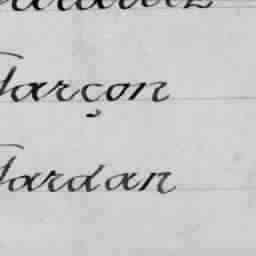 Garçon
Gardan